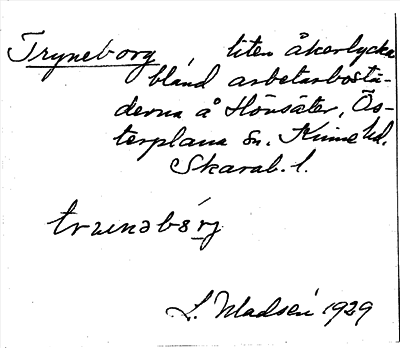 Tryneborg, liten åkerlycka
bland arbetarbostä-
derna å Hönsäter, Ös-
terplana sn. Kinne hd.
Skarab. l.
L. Madsén 1929